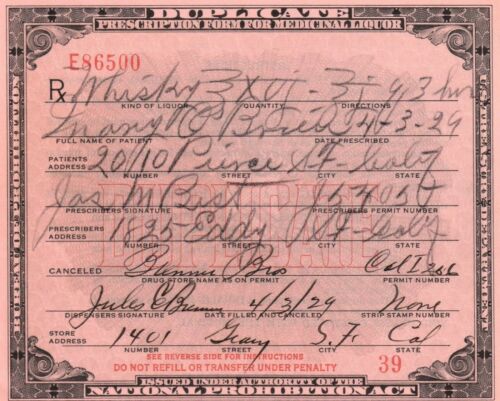 DUPLICATE
PRESCRIPTION FORM FOR MEDICINAL LIQUOR
E86500
Rx Whisky ℥XVI - ℥i q 3 hrs
KIND OF LIQUOR QUANTITY DIRECTIONS
Mary O'Brien 4-3-29
FULL NAME OF PATIENT DATE PRESCRIBED
PATIENTS ADDRESS 2010 Pierce St -
NUMBER STREET CITY STATE
Jas M Bast
PRESCRIBERS SIGNATURE PRESCRIBERS PERMIT NUMBER
PRESCRIBERS ADDRESS 1835 Eddy St -
NUMBER STREET CITY STATE
DUPLICATE
CANCELED Bros Cal I 266
DRUG STORE NAME AS ON PERMIT PERMIT NUMBER
Jules 4/3/29 None
DISPENSERS SIGNATURE DATE FILLED AND CANCELED STRIP STAMP NUMBER
STORE ADDRESS 1401 Geary S.F. Cal
NUMBER STREET CITY STATE
SEE REVERSE SIDE FOR INSTRUCTIONS
DO NOT REFILL OR TRANSFER UNDER PENALTY 39
ISSUED UNDER AUTHORITY OF THE
NATIONAL PROHIBITION ACT